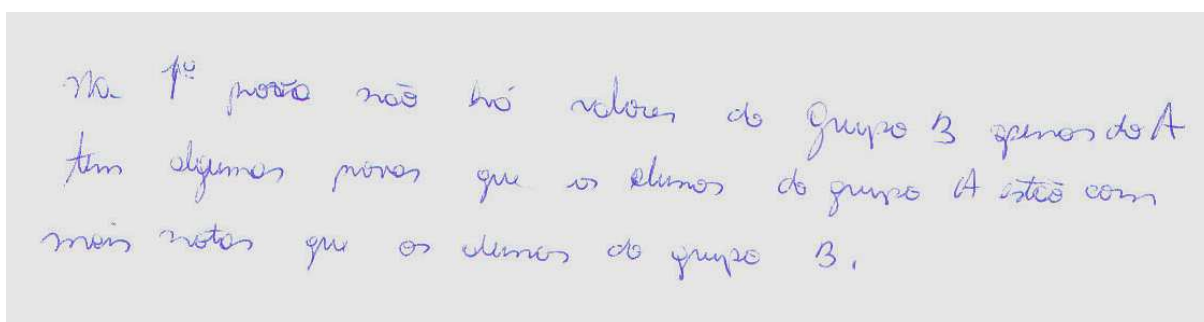 Na 1º prova não há valores do Grupo B apenas do A
tem algumas provas que os alunos do grupo A estão com
mais notas que os alunos do grupo B.